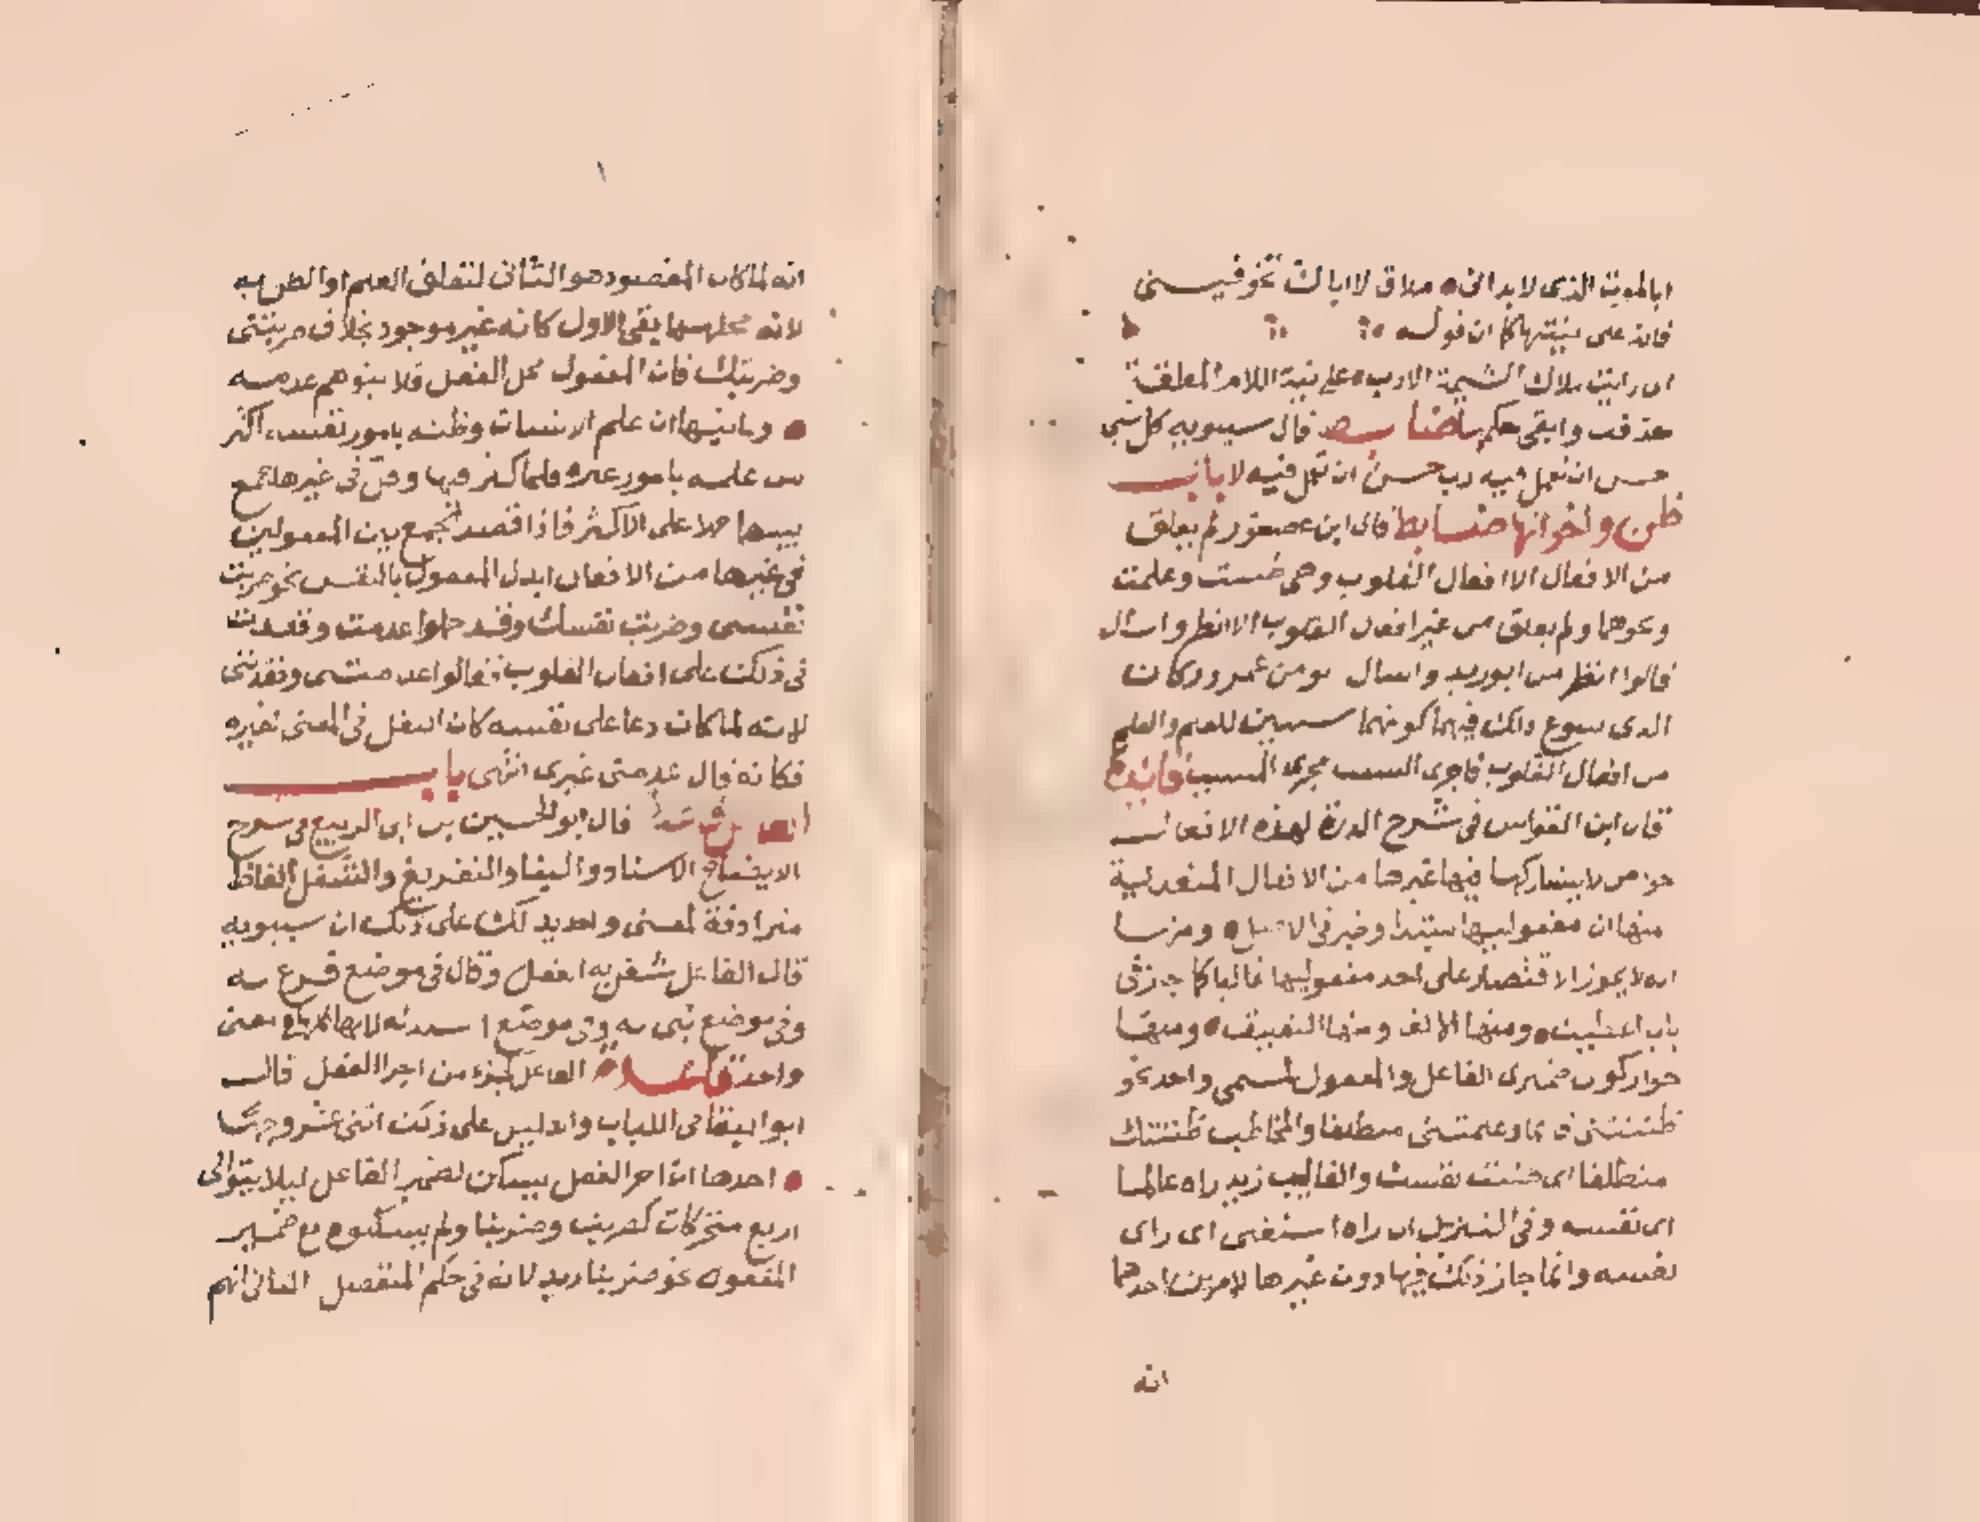 ابالموت الذى لابد انى ملاق لااباك تخوفينى
فانه على نيتها كما ان قوله
انى رايت ملاك الشيمة الادب على نية اللام المعلقة
حذفت وابقى حكمها ضابط قال سيبويه كل شى
حسن ان تعمل فيه رب حسن ان تعمل فيه لا باب
ظن واخواتها ضابط قال ابن عصفور لم يعلق
من الافعال الا افعال القلوب وهى ظننت وعلمت
ونحوهما ولم يعلق من غير افعال القلوب الا انظر واسال
قالوا انظر من ابو زيد واسال من عمرو وكان
الذى سوغ ذلك فيهما كونهما سببين للعلم والعلم
من افعال القلوب فاجرى السبب مجرى المسبب فائدة
قال ابن القواس فى شرح الدرة لهذه الافعال
خواص لا يشاركها فيها غيرها من الافعال المتعدية
منها ان مفعوليها مبتدا وخبر فى الاصل ومنها
انه لا يجوز الاقتصار على احد مفعوليها غالبا كما جاز فى
باب اعطيت ومنها الالغا ومنها التعليق ومنها
جواز كون ضميرى الفاعل والمفعول لمسمى واحد نحو
ظننتنى وعلمتنى منطلقا والمخاطب ظننتك
منطلقا اى ظننت نفسك والغايب زيد راه عالما
اى نفسه وفى التنزيل ان راه استغنى اى راى
نفسه وانما جاز ذلك فيها دون غيرها لامرين احدهما
انه
انه لما كان المقصود هو الثانى لتعلق العلم او الظن به
لانه محلهما بقى الاول كانه غير موجود بخلاف ضربتنى
وضربتك فان المفعول محل الفعل فلا يتوهم عدمه
وثانيها ان علم الانسان وظنه بامور نفسه اكثر
من علمه بامور غيره فلما كثر فيها وقل فى غيرها جمع
بينهما حملا على الاكثر فاذا قصد الجمع بين المفعولين
فى غيرها من الافعال ابدل المفعول بالنفس نحو ضربت
نفسى وضربت نفسك وقد حملوا عدمت وفقدت
فى ذلك على افعال القلوب فقالوا عدمتنى وفقدتنى
لانه لما كان دعا على نفسه كان الفعل فى المعنى لغيره
فكانه قال عدمنى غيرى انتهى باب
الفاعل قال ابو الحسين بن ابى الربيع فى شرح
الايضاح الاسناد والبنا والتفريغ والشغل الفاظ
مترادفة لمعنى واحد يدلك على ذلك ان سيبويه
قال الفاعل شغل به الفعل وقال فى موضع فرغ له
وفى موضع بنى له وفى موضع اسند له لانها كلها بمعنى
واحد قاعدة الفاعل كجزء من اجزا الفعل قال
ابو البقا فى اللباب والدليل على ذلك اثنى عشر وجها
احدها ان اخر الفعل يسكن لضمير الفاعل ليلا يتوالى
اربع متحركات كضربت وضربنا ولم يسكنوه مع ضمير
المفعول نحو ضربنا زيد لانه فى حكم المنفصل الثانى انهم